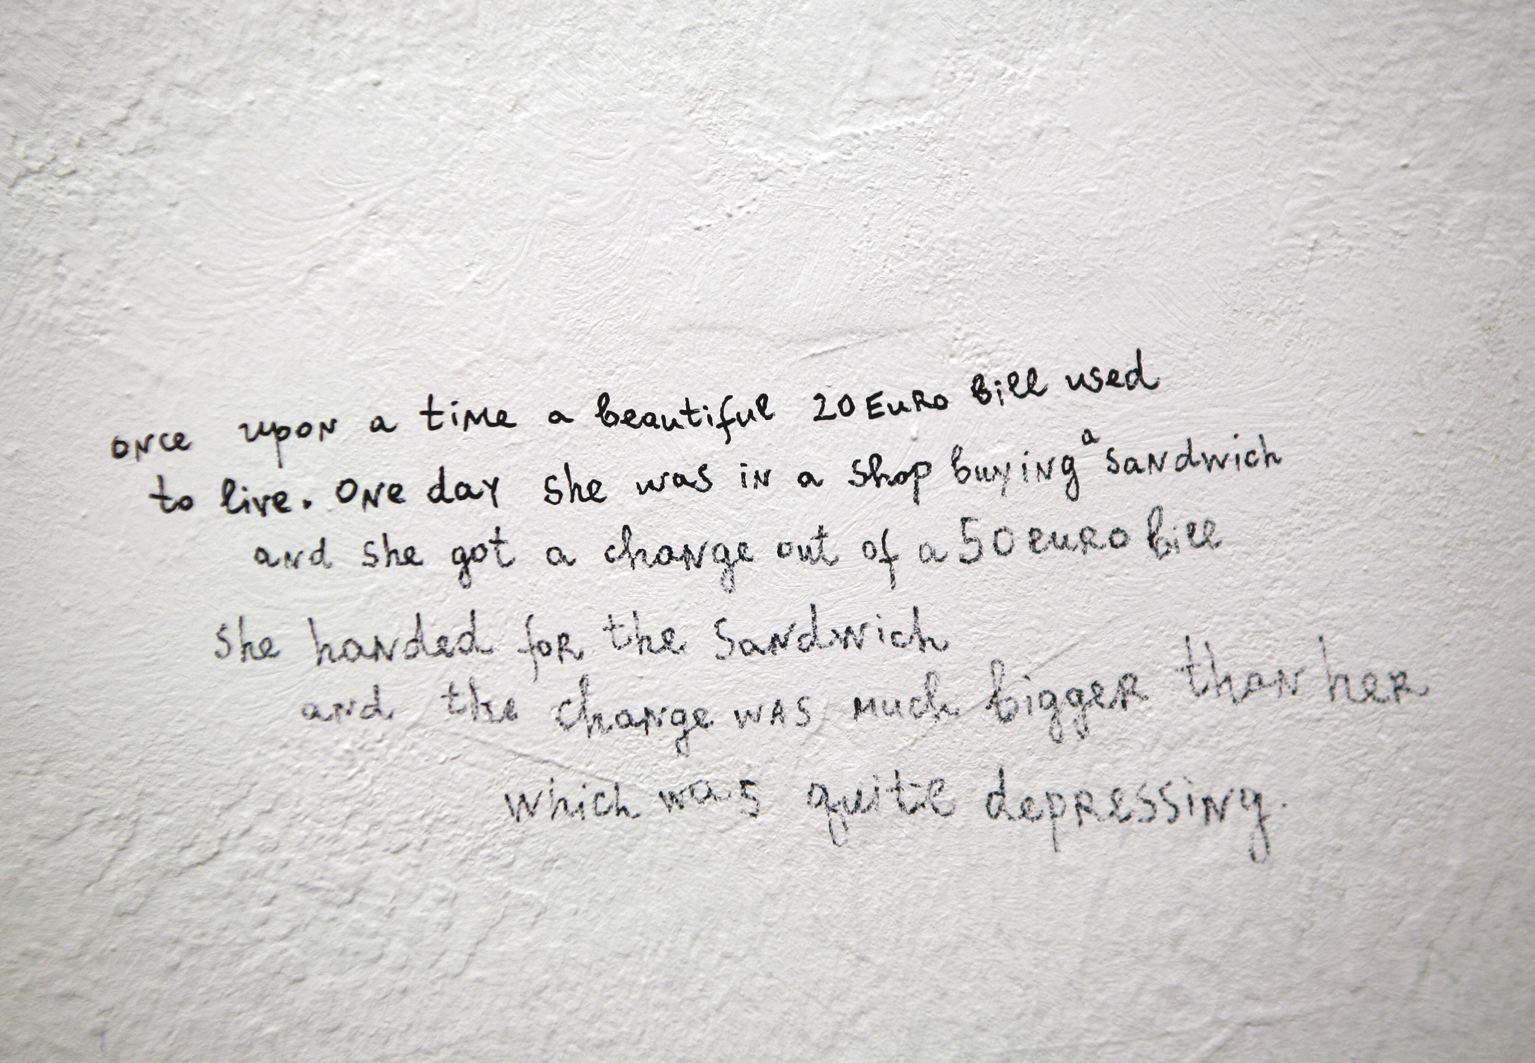 once upon a time a beautiful 20 Euro bill used
to live. One day she was in a shop buying a sandwich
and she got a change out of a 50 euro bill
She handed for the Sandwich
and the change was much bigger than her
which was quite depressing.